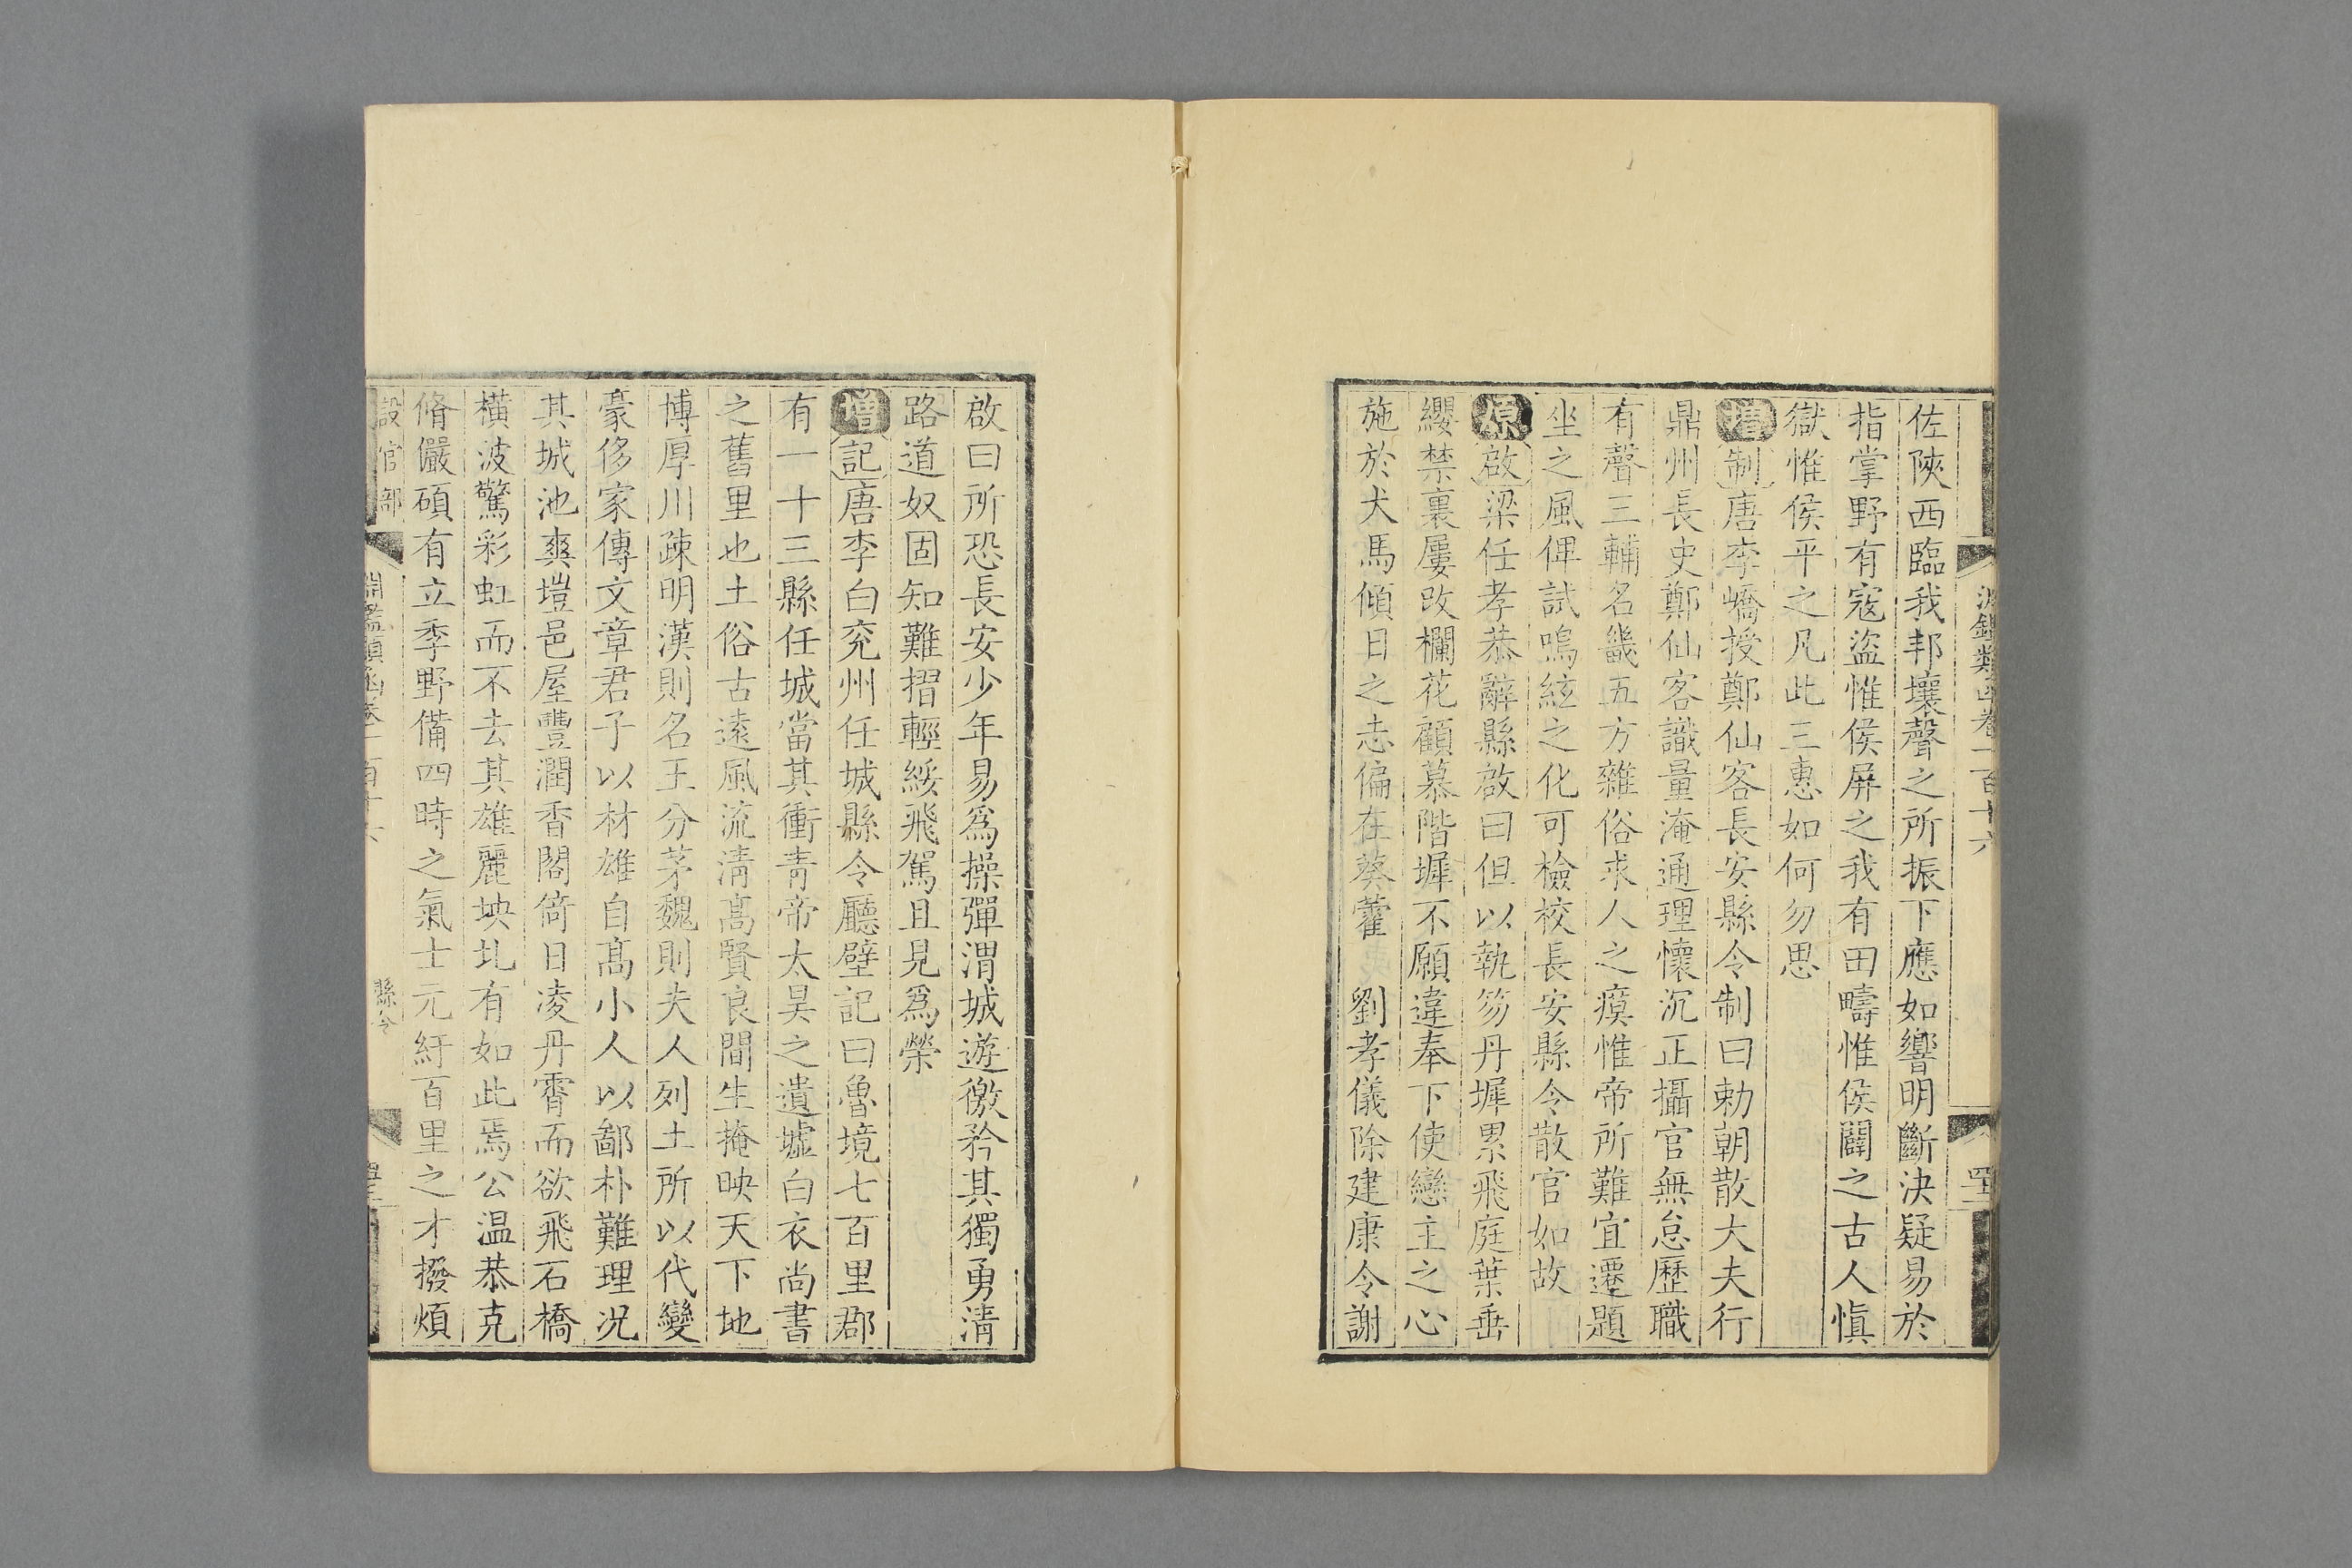 佐陝西臨我邦壤聲之所振下應如響明斷決疑易於
指掌野有寇盜惟侯屏之我有田疇惟侯闢之古人愼
獄惟侯平之凡此三惠如何勿思
增制唐李嶠授鄭仙客長安縣令制曰勅朝散大夫行
鼎州長史鄭仙客識量淹通理懷沉正攝官無怠歷職
有聲三輔名畿五方雜俗求人之瘼惟帝所難宜遷題
坐之風俾試鳴絃之化可檢校長安縣令散官如故
原啟梁任孝恭辭縣啟曰但以執笏丹墀累飛庭葉垂
纓禁裏屢改欄花顧慕階墀不願違奉下使戀主之心
施於犬馬傾日之志偏在葵藿 劉孝儀除建康令謝
啟曰所恐長安少年易爲操彈渭城遊徼矜其獨勇清
路道奴固知難摺輕綏飛駕且見爲榮
增記唐李白兖州任城縣令廳壁記曰魯境七百里郡
有一十三縣任城當其衝青帝太昊之遺墟白衣尚書
之舊里也土俗古遠風流清髙賢良間生掩映天下地
博厚川疎明漢則名王分茅魏則夫人列土所以代變
豪侈家傳文章君子以材雄自髙小人以鄙朴難理况
其城池爽塏邑屋豐潤香閣倚日凌丹霄而欲飛石橋
橫波驚彩虹而不去其雄麗坱圠有如此焉公温恭克
脩儼碩有立季野備四時之氣士元紆百里之才撥煩
設官部
縣令